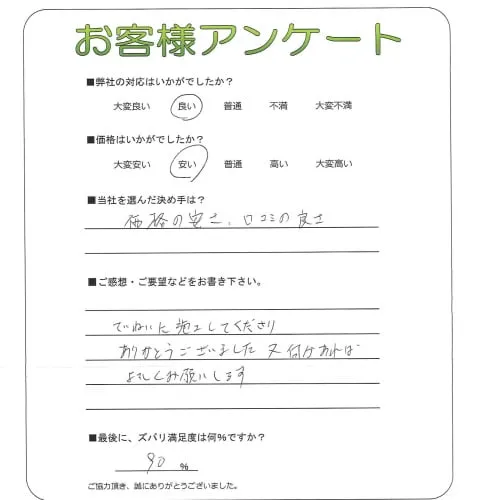 お客様アンケート
■弊社の対応はいかがでしたか？
大変良い 良い 普通 不満 大変不満
■価格はいかがでしたか？
大変安い 安い 普通 高い 大変高い
■当社を選んだ決め手は？
価格の安さ、口コミの良さ
■ご感想・ご要望などをお書き下さい。
ていねいに施工してくださり
ありがとうございました 又何かあれば
よろしくお願いします
■最後に、ズバリ満足度は何％ですか？
90 ％
ご協力頂き、誠にありがとうございました。